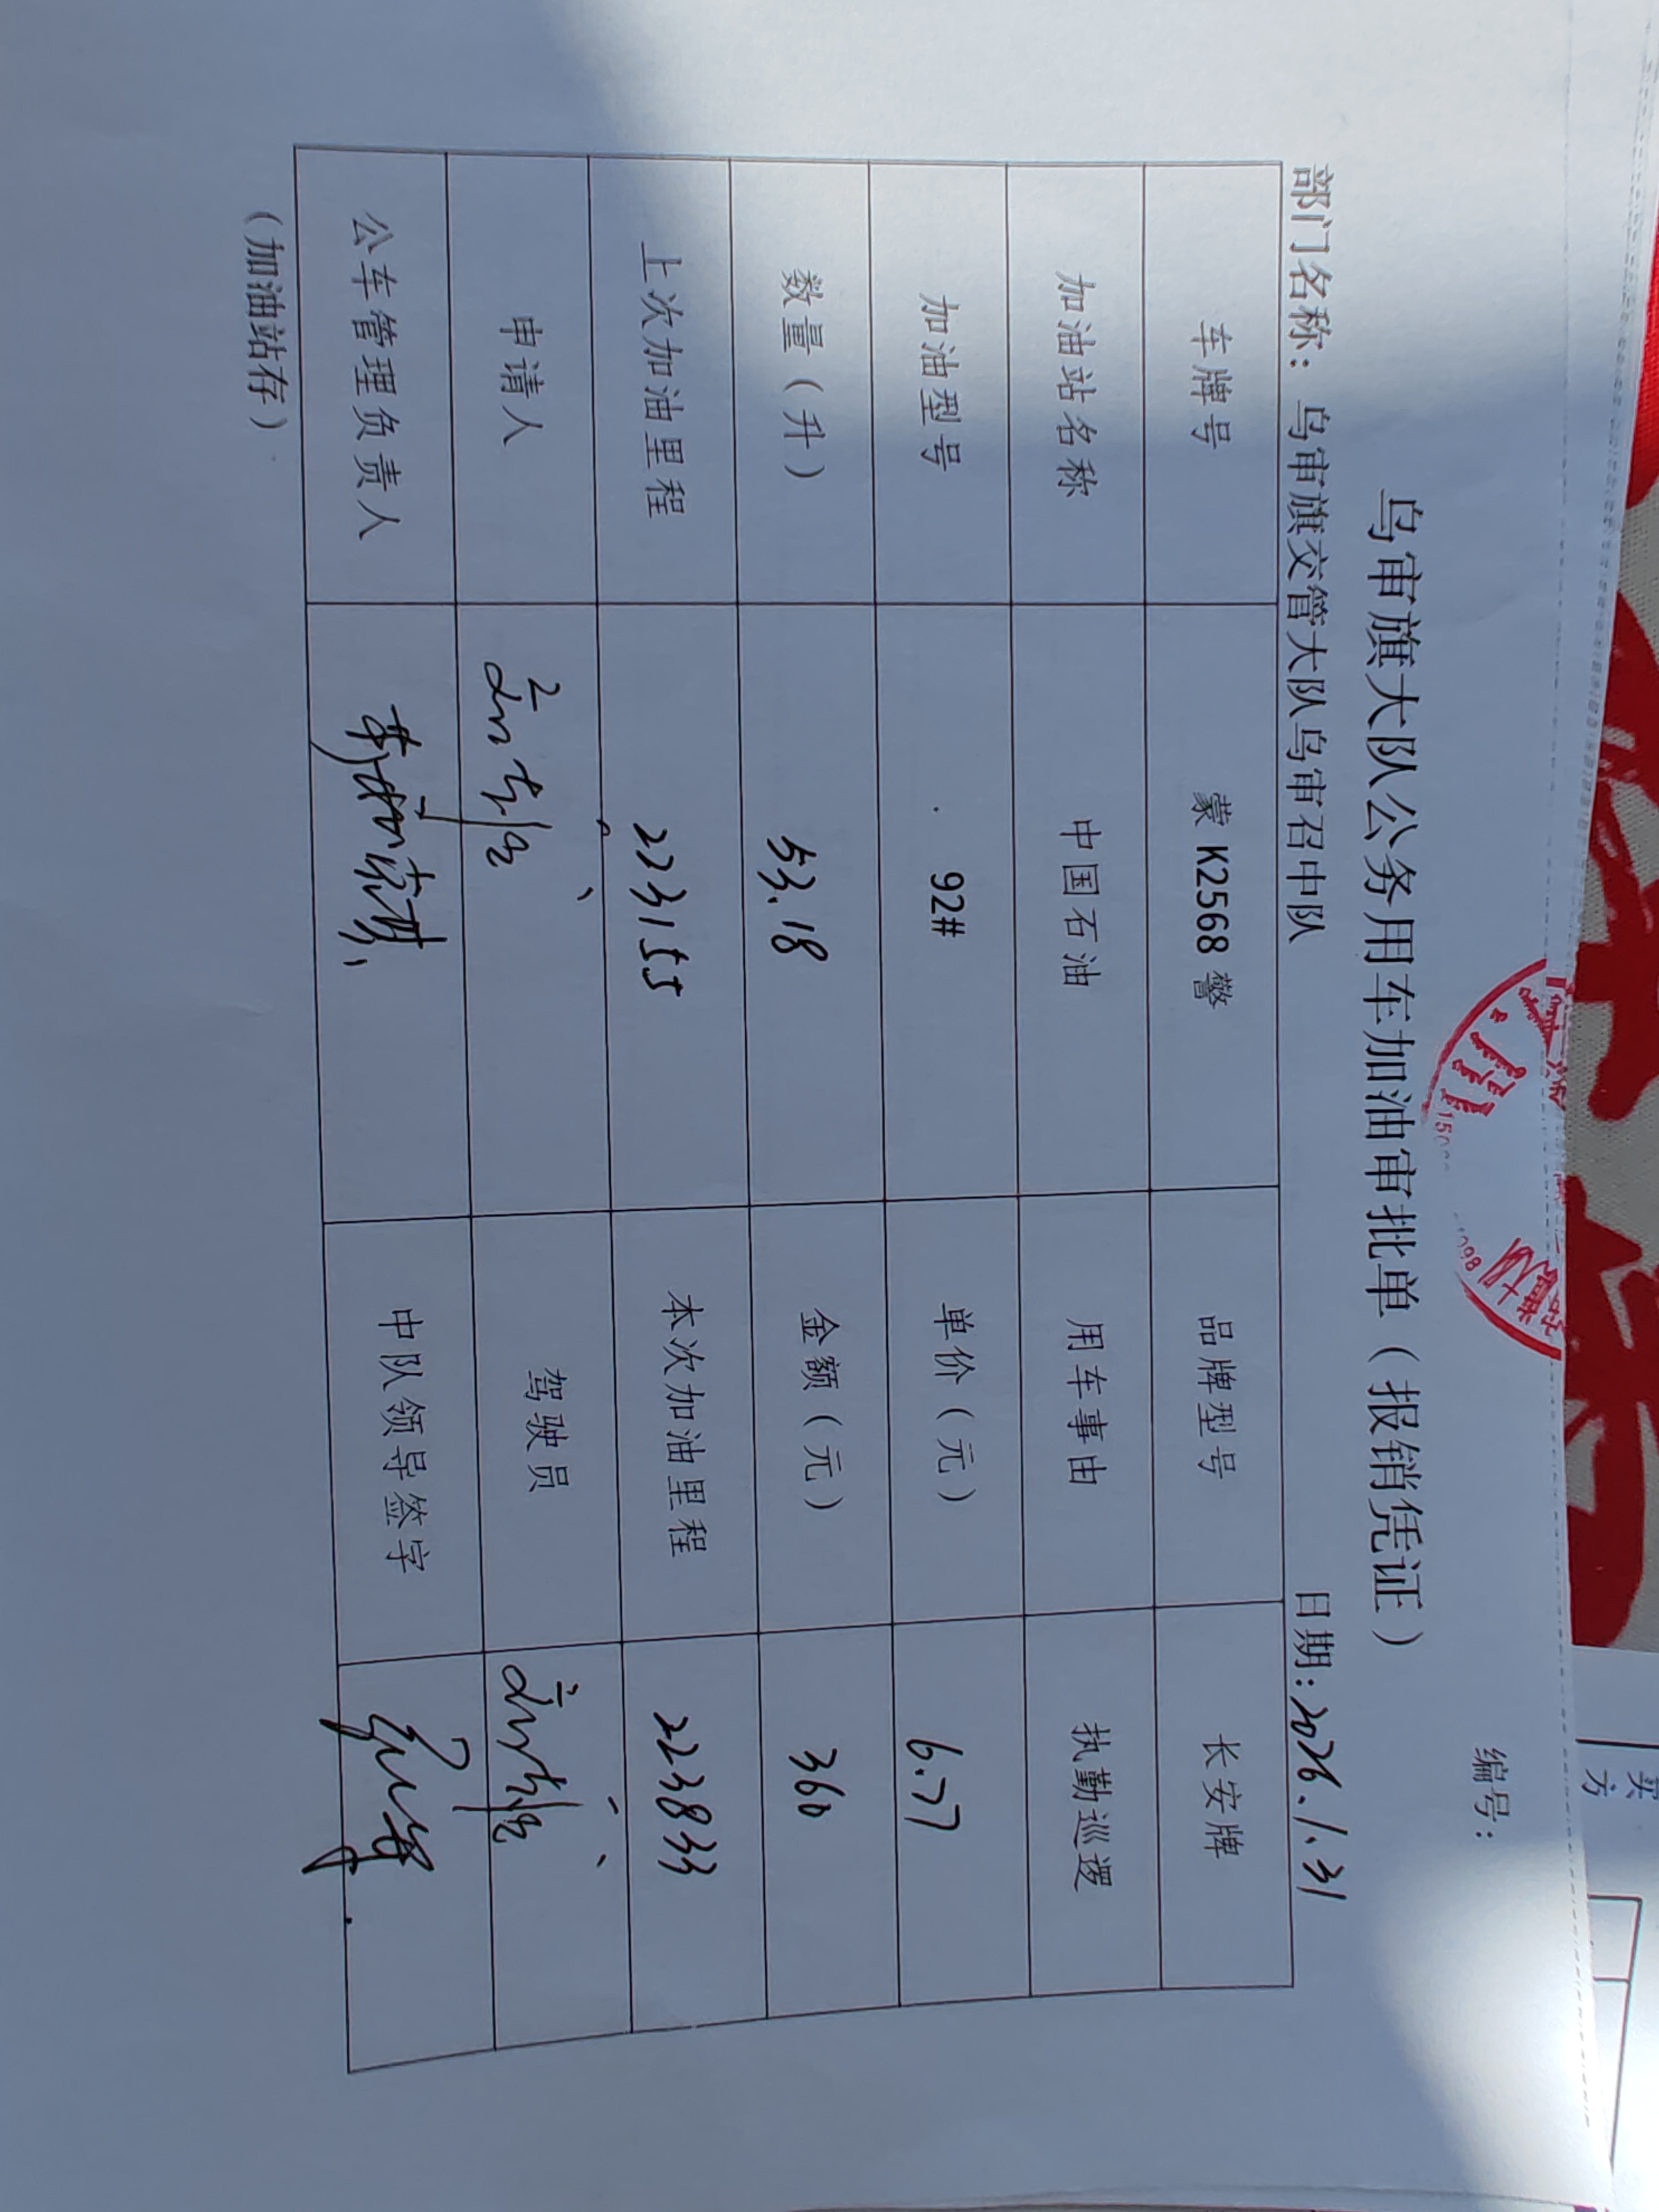 编号：
乌审旗大队公务用车加油审批单（报销凭证）
部门名称：乌审旗交管大队乌审召中队 日期：2026.1.31
车牌号 蒙K2568警 品牌型号 长安牌
加油站名称 中国石油 用车事由 执勤巡逻
加油型号 92# 单价（元） 6.77
数量（升） 53.18 金额（元） 360
上次加油里程 223155 本次加油里程 223833
申请人 驾驶员
公车管理负责人 中队领导签字
（加油站存）
买
方